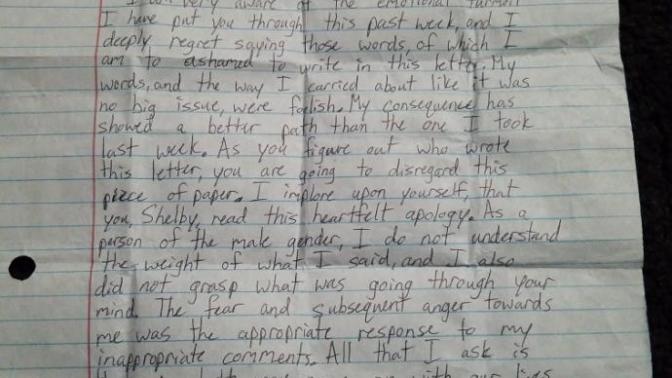 very aware of the emotional turmoil
I have put you through this past week, and I
deeply regret saying those words, of which I
am to ashamed to write in this letter. My
words, and the way I carried about like it was
no big issue, were foolish. My consequence has
showed a better path than the one I took
last week. As you figure out who wrote
this letter, you are going to disregard this
piece of paper. I implore upon yourself, that
you, Shelby, read this heartfelt apology. As a
person of the male gender, I do not understand
the weight of what I said, and I also
did not grasp what was going through your
mind. The fear and subsequent anger towards
me was the appropriate response to my
inappropriate comments. All that I ask is
with our lives